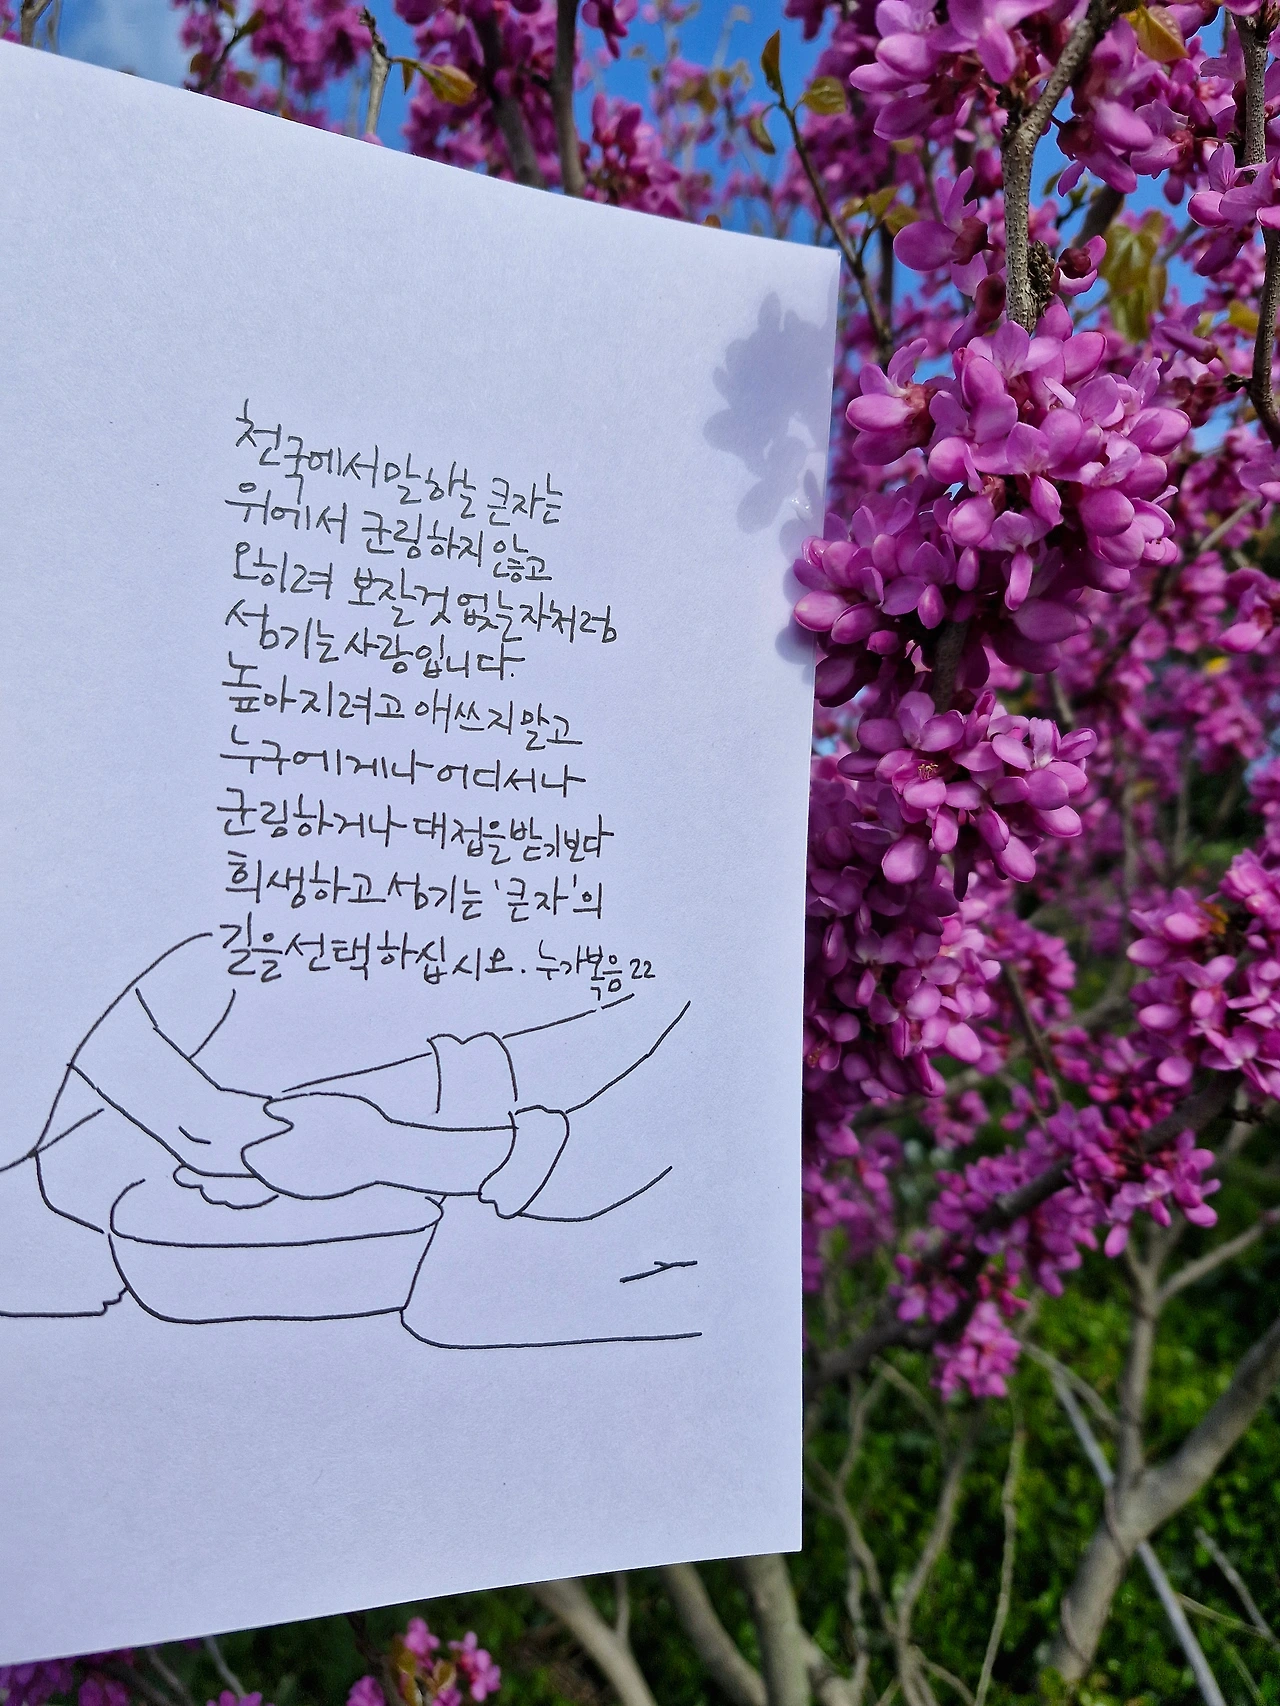 천국에서 말하는 큰 자는
위에서 군림하지 않고
오히려 보잘것 없는 자처럼
섬기는 사랑입니다.
높아지려고 애쓰지 말고
누구에게나 어디서나
군림하거나 대접을 받기보다
희생하고 섬기는 '큰 자'의
길을 선택하십시오. 누가복음 22